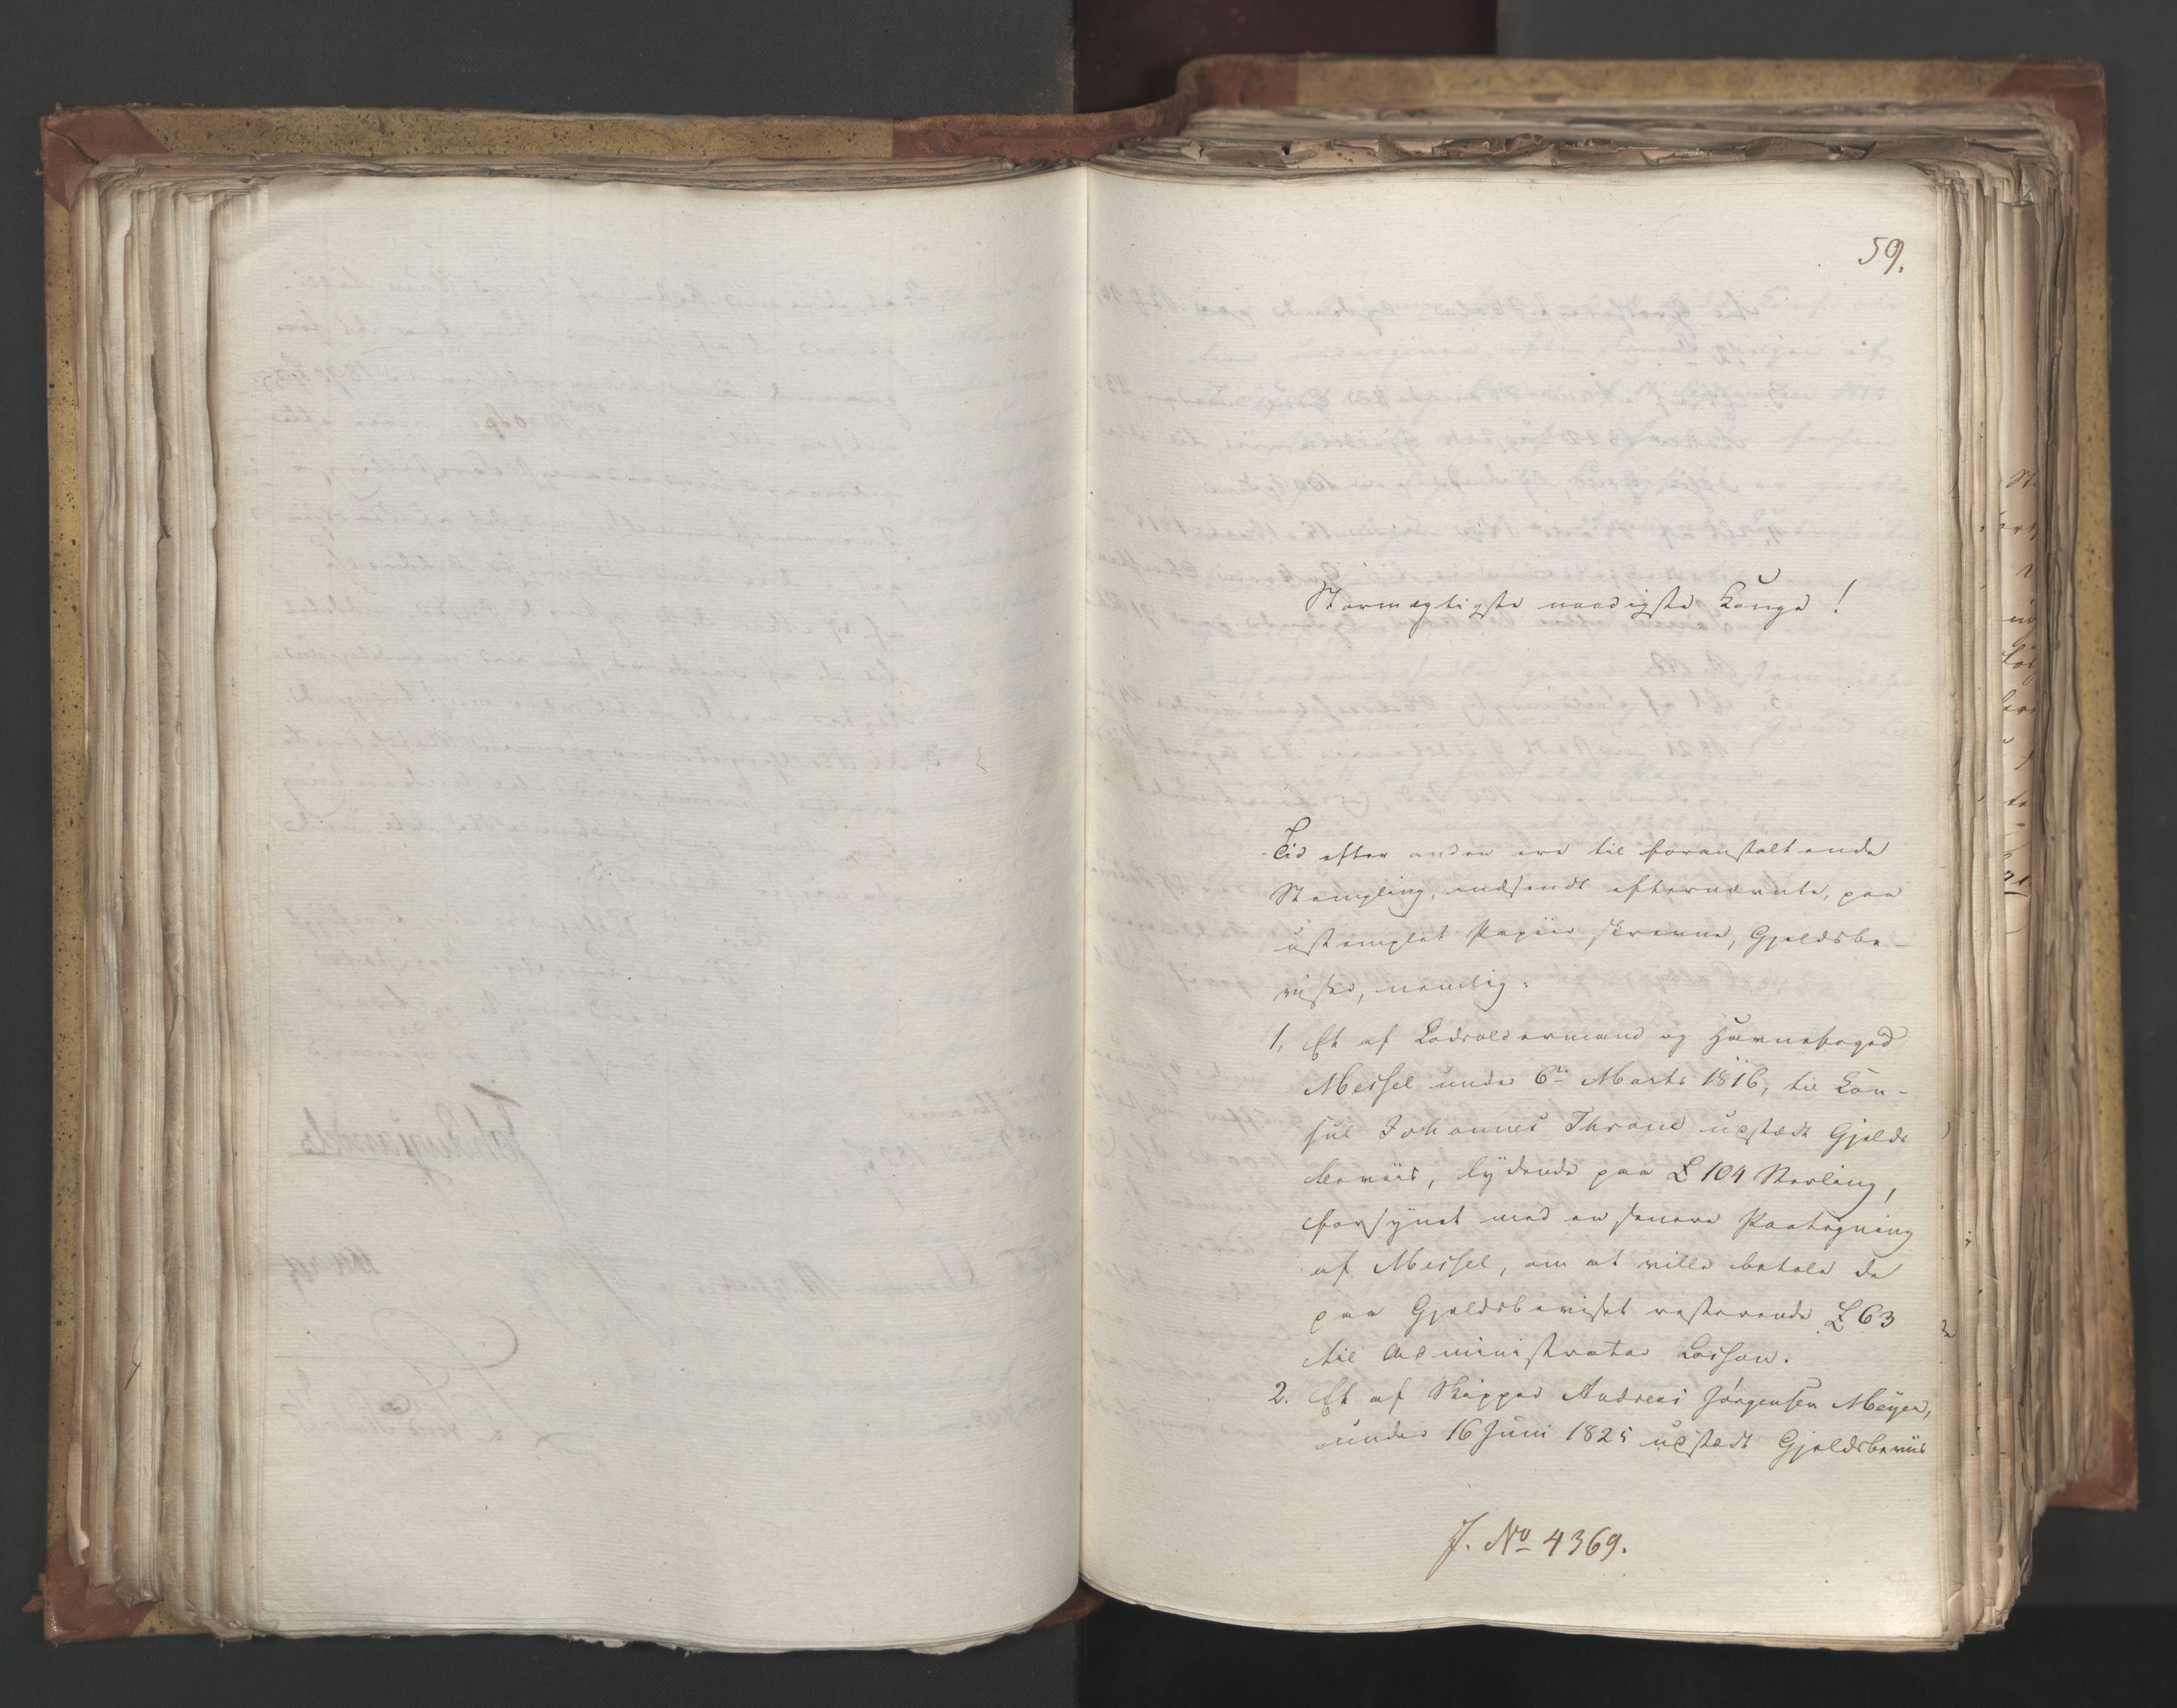 59.
Stormægtigste naadigste Konge!
Tid efter anden ere til foranstaltende
Stempling, indsendt efternævnte, paa
ustemplet Papiir skrevne, Gjeldsbe-
viser, nemlig:
1, Et af Lodsoldermand og Havnefoged
Meisel under 6te Marts 1816, til Con-
sul Johannes Thrane udstædt Gjelds
beviis, lydende paa £ 104 Sterling,
forsynet med en senere Paategning
af Meisel, om at ville betale de
paa Gjeldsbeviset resterende £ 63
til Administrator Lasson.
2. Et af Skipper Andreas Jørgensen Meyer,
under 16 Juni 1825 udstædt Gjeldsbeviis
J. No 4369.